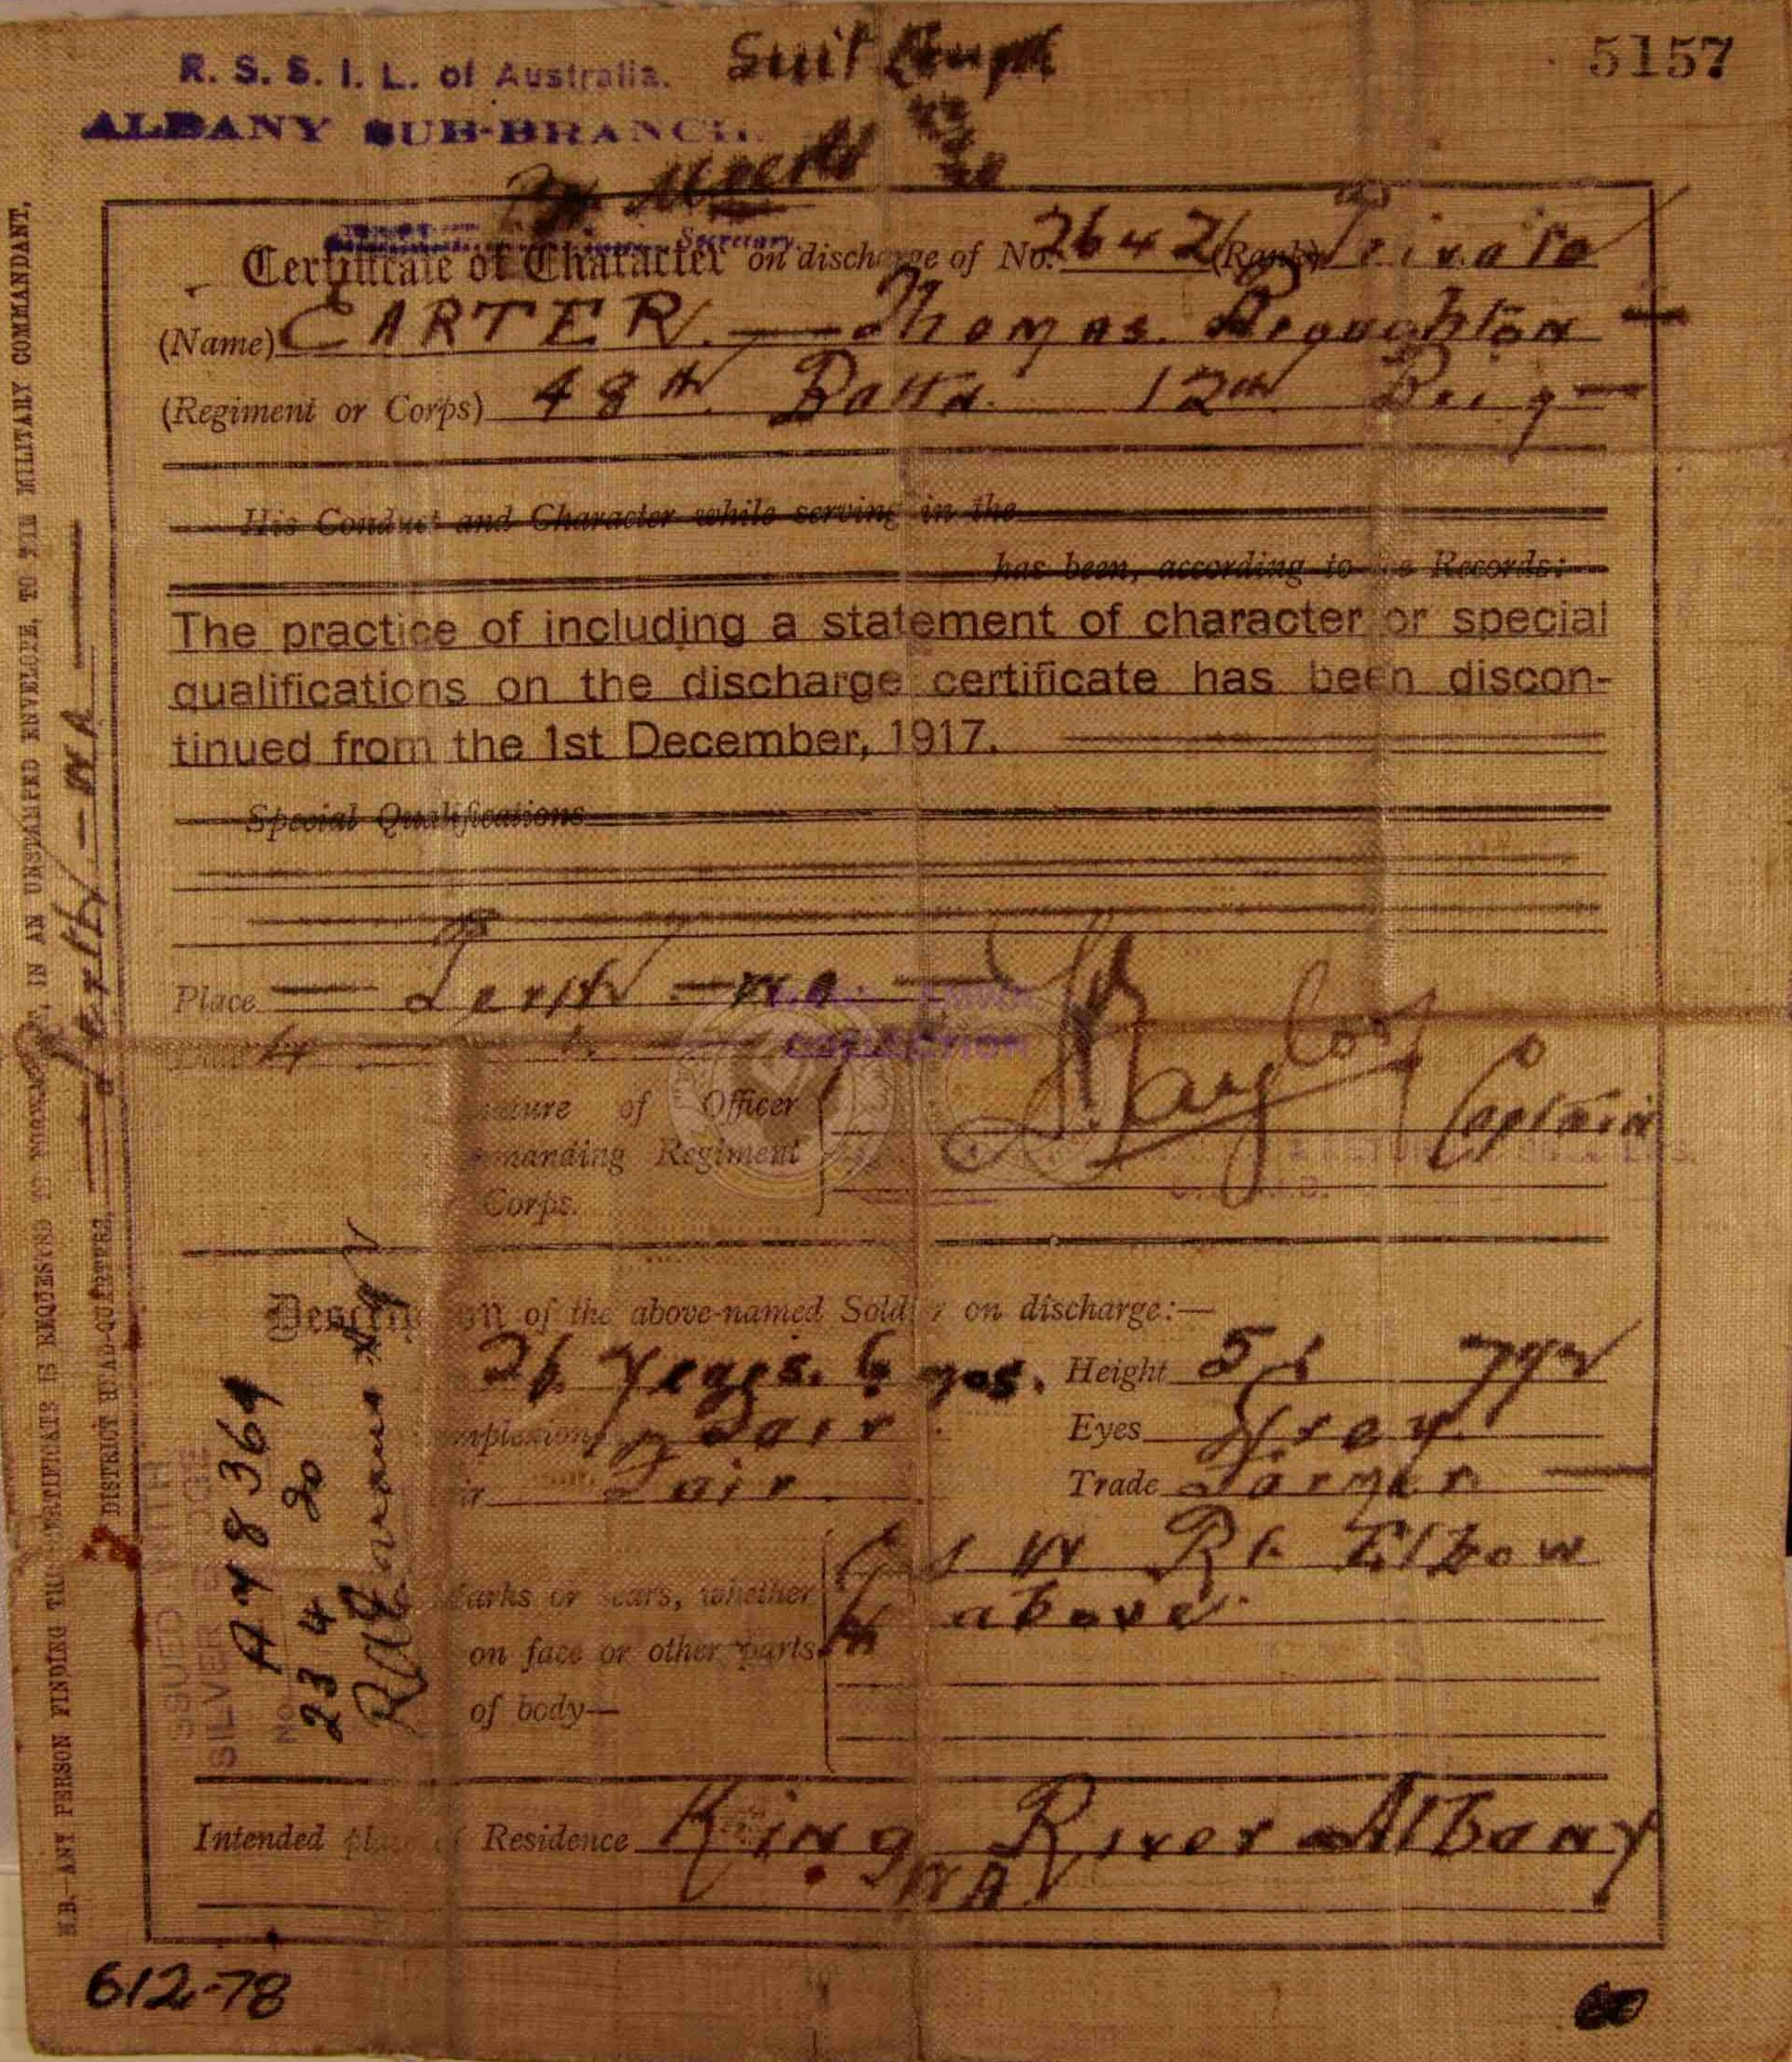 5157
R. S. S. I. L. of Australia. Suit
ALBANY SUB-BRANCH.
Secretary.
Certificate of Character on discharge of No. 2642 (Rank) Private
(Name) CARTER. — Thomas. Broughton —
(Regiment or Corps) 48th Battn. 12th Reig —
His Conduct and Character while serving in the
has been, according to the Records:
The practice of including a statement of character or special
qualifications on the discharge certificate has been discon-
tinued from the 1st December, 1917.
Special Qualifications
Place — Perth — WA —
COLLECTION
Taylor Captain
of Officer
manding Regiment
Corps.
of the above-named Soldier on discharge:—
26 Years. 6 mos. Height 5ft
mplexion Fair Eyes Grey
ir Fair Trade Farmer —
G S W Rt. Elbow
Marks or scars, whether
above
on face or other parts
of body—
Intended place of Residence King River Albany
WA
N.B.—ANY PERSON FINDING THIS CERTIFICATE IS REQUESTED TO FORWARD IT, IN AN UNSTAMPED ENVELOPE, TO THE MILITARY COMMANDANT,
DISTRICT HEAD-QUARTERS, Perth — WA
ISSUED WITH
SILVER BADGE
A48364
No
23 4 20
612-78
60